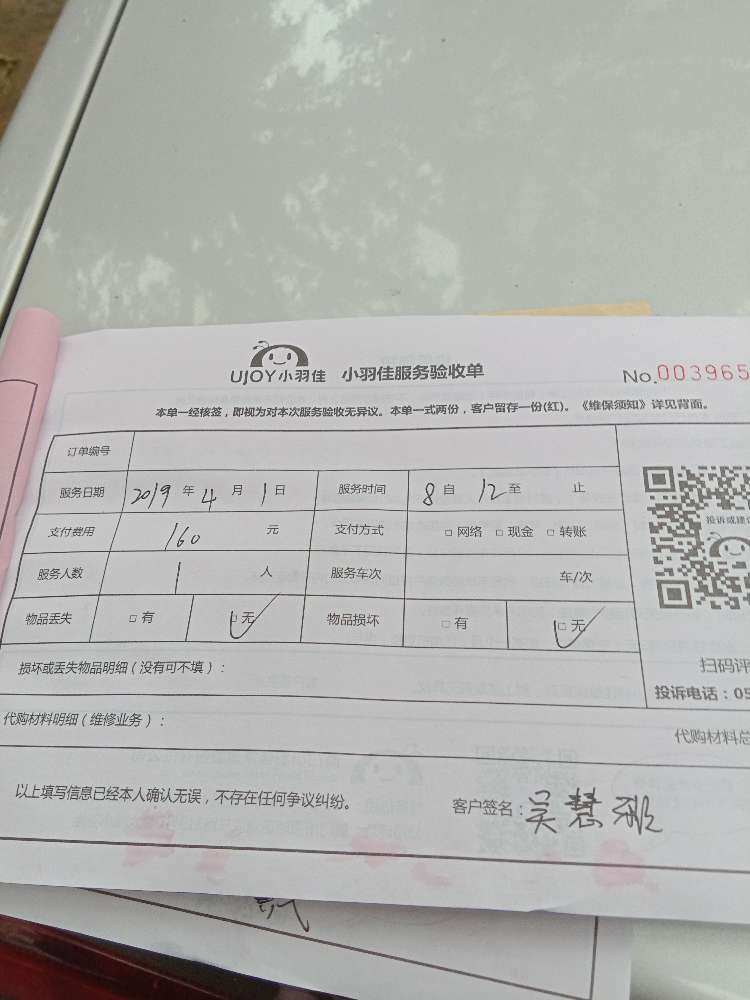 UJOY小羽佳 小羽佳服务验收单 No.003965
本单一经核签，即视为对本次服务验收无异议。本单一式两份，客户留存一份(红)。《维保须知》详见背面。
订单编号
服务日期 2019 年 4 月 1 日 服务时间 8 自 12 至 止
支付费用 160 元 支付方式 □ 网络 □ 现金 □ 转账
投诉或建议
服务人数 1 人 服务车次 车/次
物品丢失 □ 有 □ 无 物品损坏 □ 有 □ 无
损坏或丢失物品明细（没有可不填）：
扫码评
投诉电话：05
代购材料明细（维修业务）：
代购材料总
以上填写信息已经本人确认无误，不存在任何争议纠纷。 客户签名：吴慧